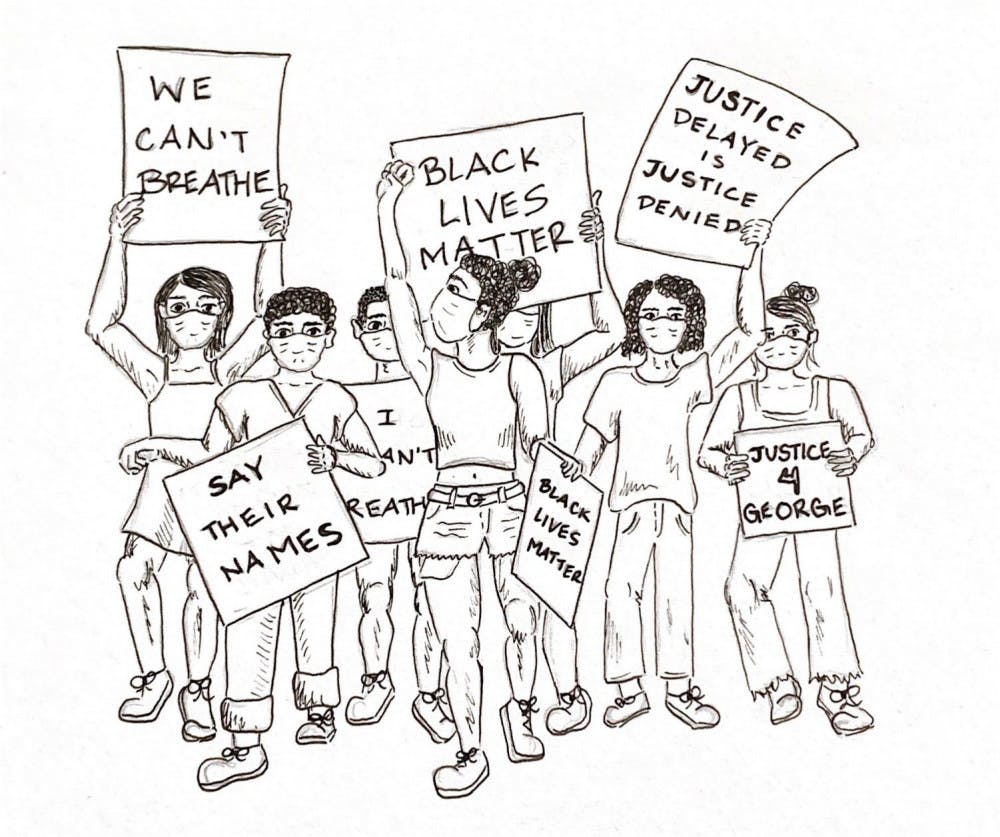 WE
CAN'T
BREATHE
BLACK
LIVES
MATTER
JUSTICE
DELAYED
IS
JUSTICE
DENIED
SAY
THEIR
NAMES
I
AN'T
REATH
BLACK
LIVES
MATTER
JUSTICE
4
GEORGIE